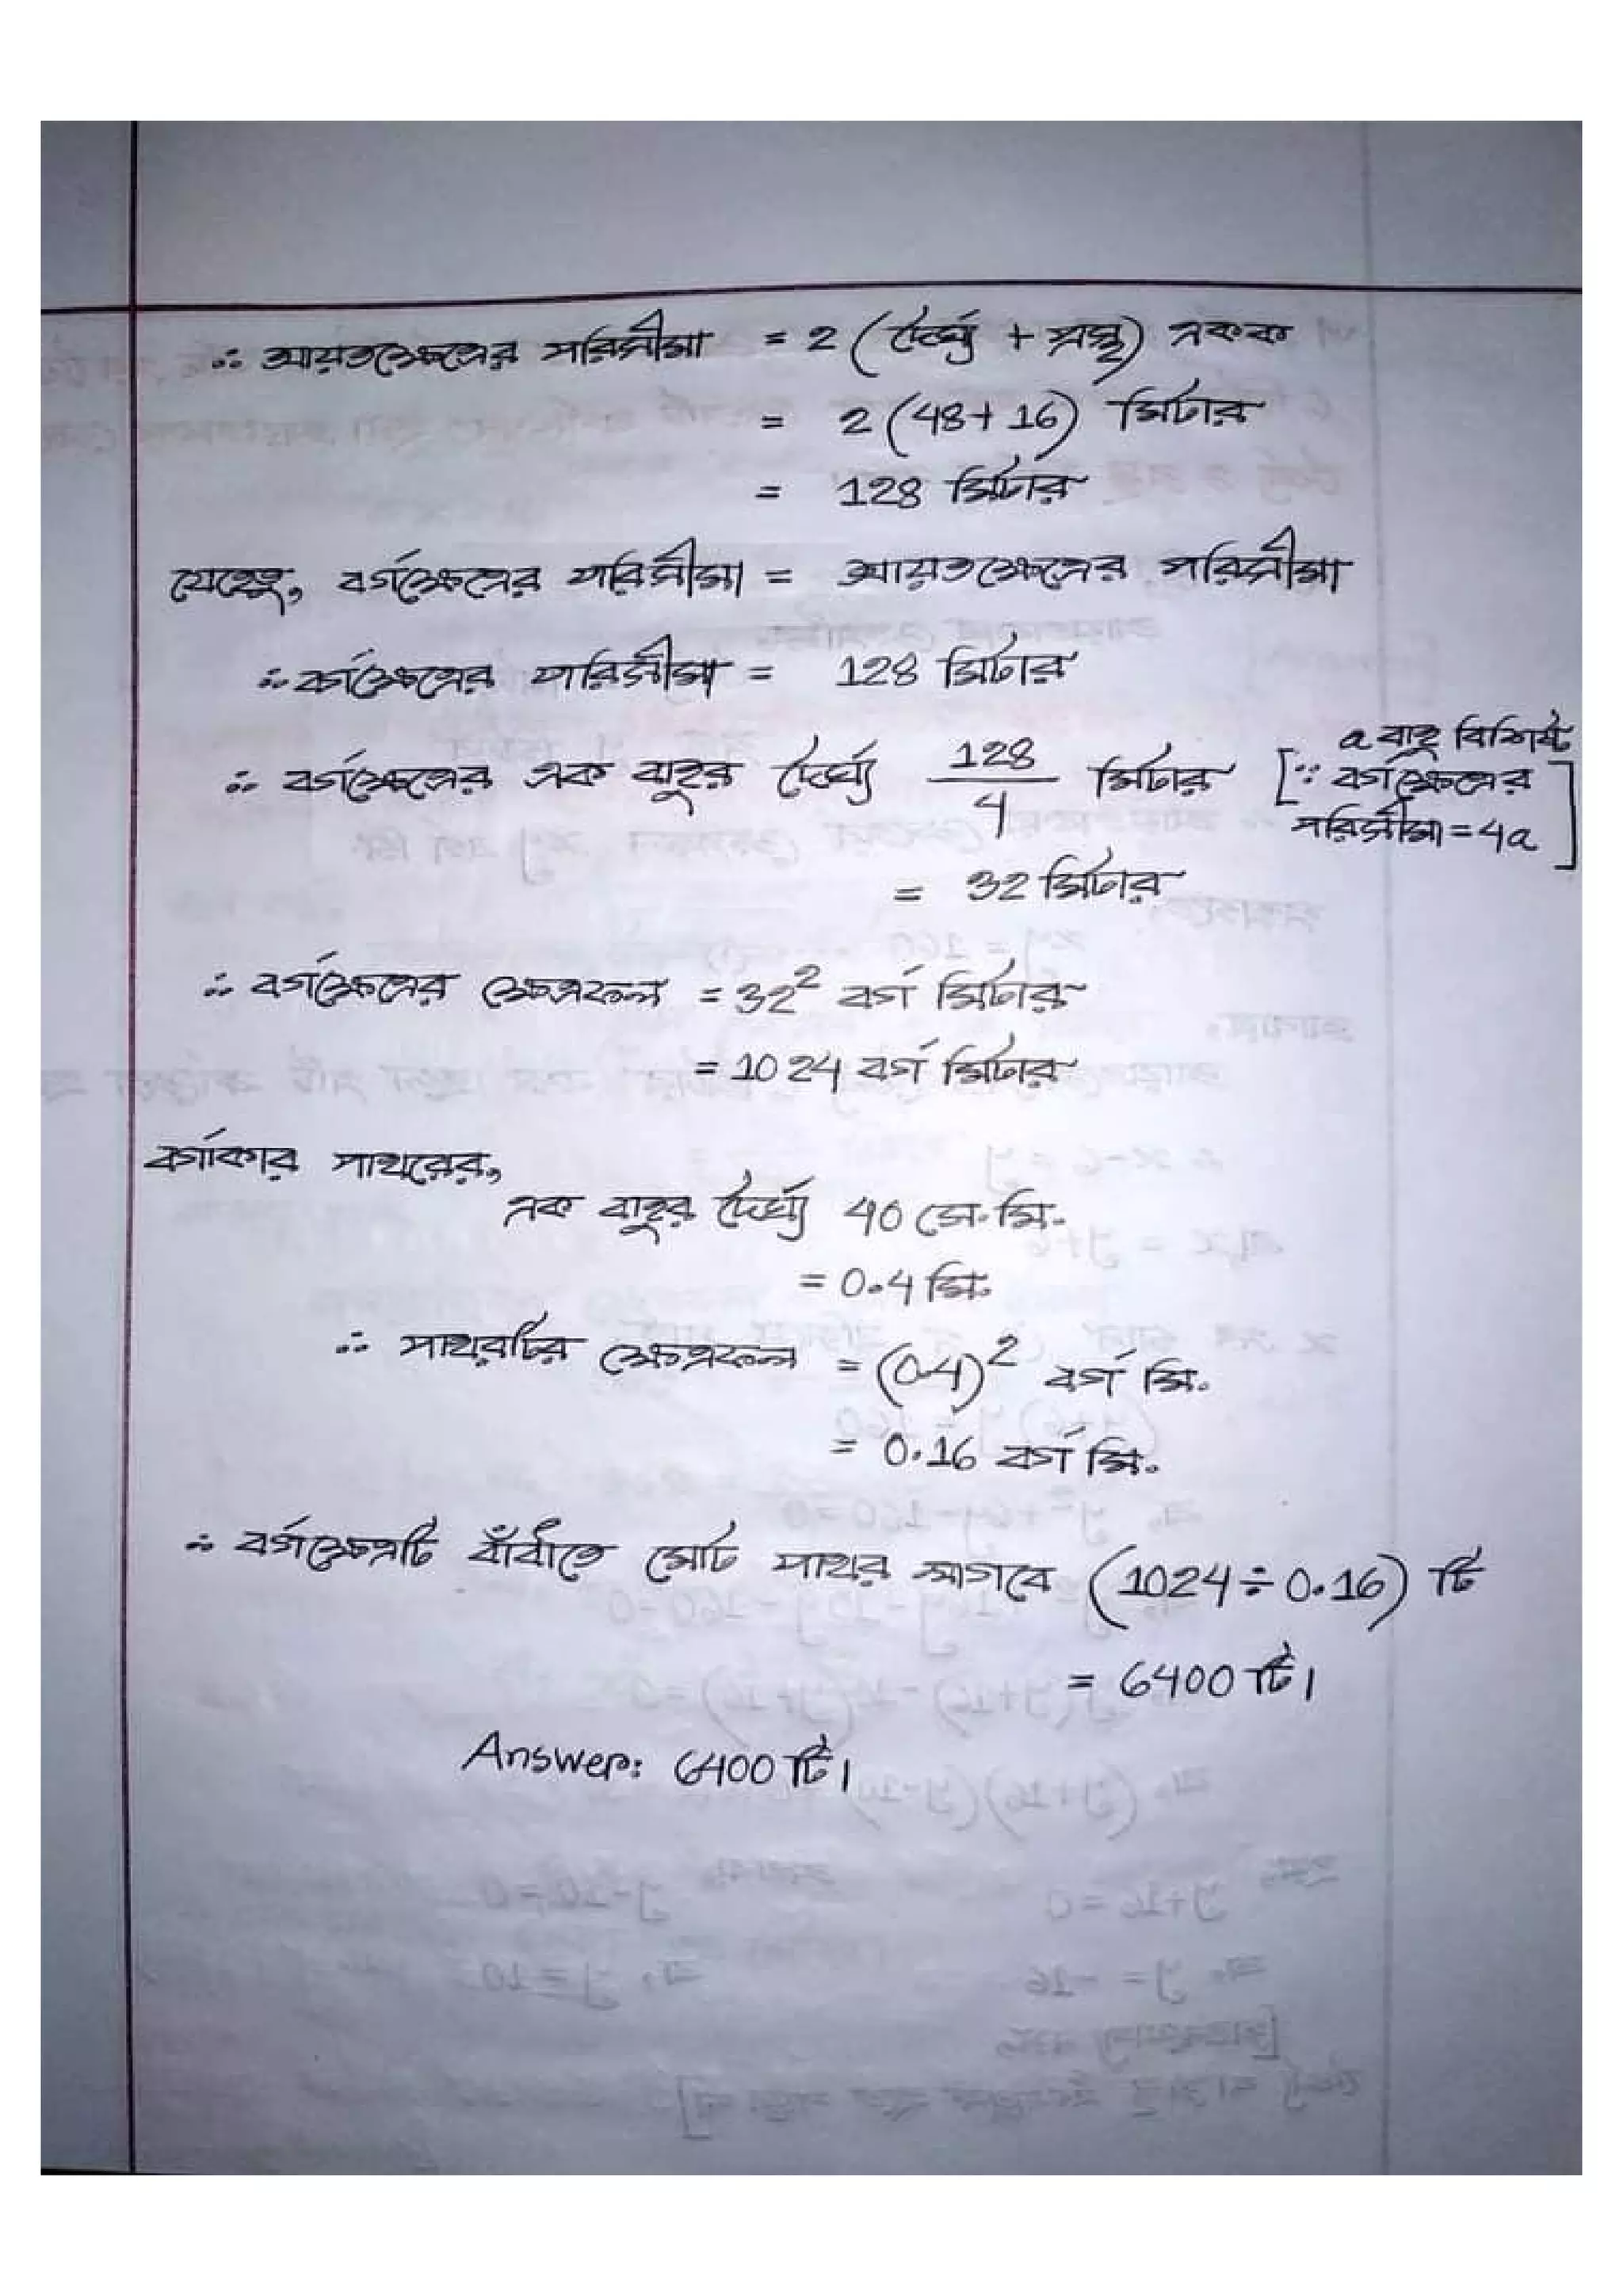 ∴ আয়তক্ষেত্রের পরিসীমা = 2 (দৈর্ঘ্য + প্রস্থ) একক
= 2 (48+16) মিটার
= 128 মিটার
যেহেতু, বর্গক্ষেত্রের পরিসীমা = আয়তক্ষেত্রের পরিসীমা
∴ বর্গক্ষেত্রের পরিসীমা = 128 মিটার
∴ বর্গক্ষেত্রের এক বাহুর দৈর্ঘ্য 128/4 মিটার [∵ a বাহু বিশিষ্ট বর্গক্ষেত্রের পরিসীমা = 4a]
= 32 মিটার
∴ বর্গক্ষেত্রের ক্ষেত্রফল = 32² বর্গ মিটার
= 1024 বর্গ মিটার
বর্গাকার পাথরের,
এক বাহুর দৈর্ঘ্য 40 সে. মি.
= 0.4 মি.
∴ পাথরটির ক্ষেত্রফল = (0.4)² বর্গ মি.
= 0.16 বর্গ মি.
∴ বর্গক্ষেত্রটি বাঁধাতে মোট পাথর লাগবে (1024 ÷ 0.16) টি
= 6400 টি।
Answer: 6400 টি।